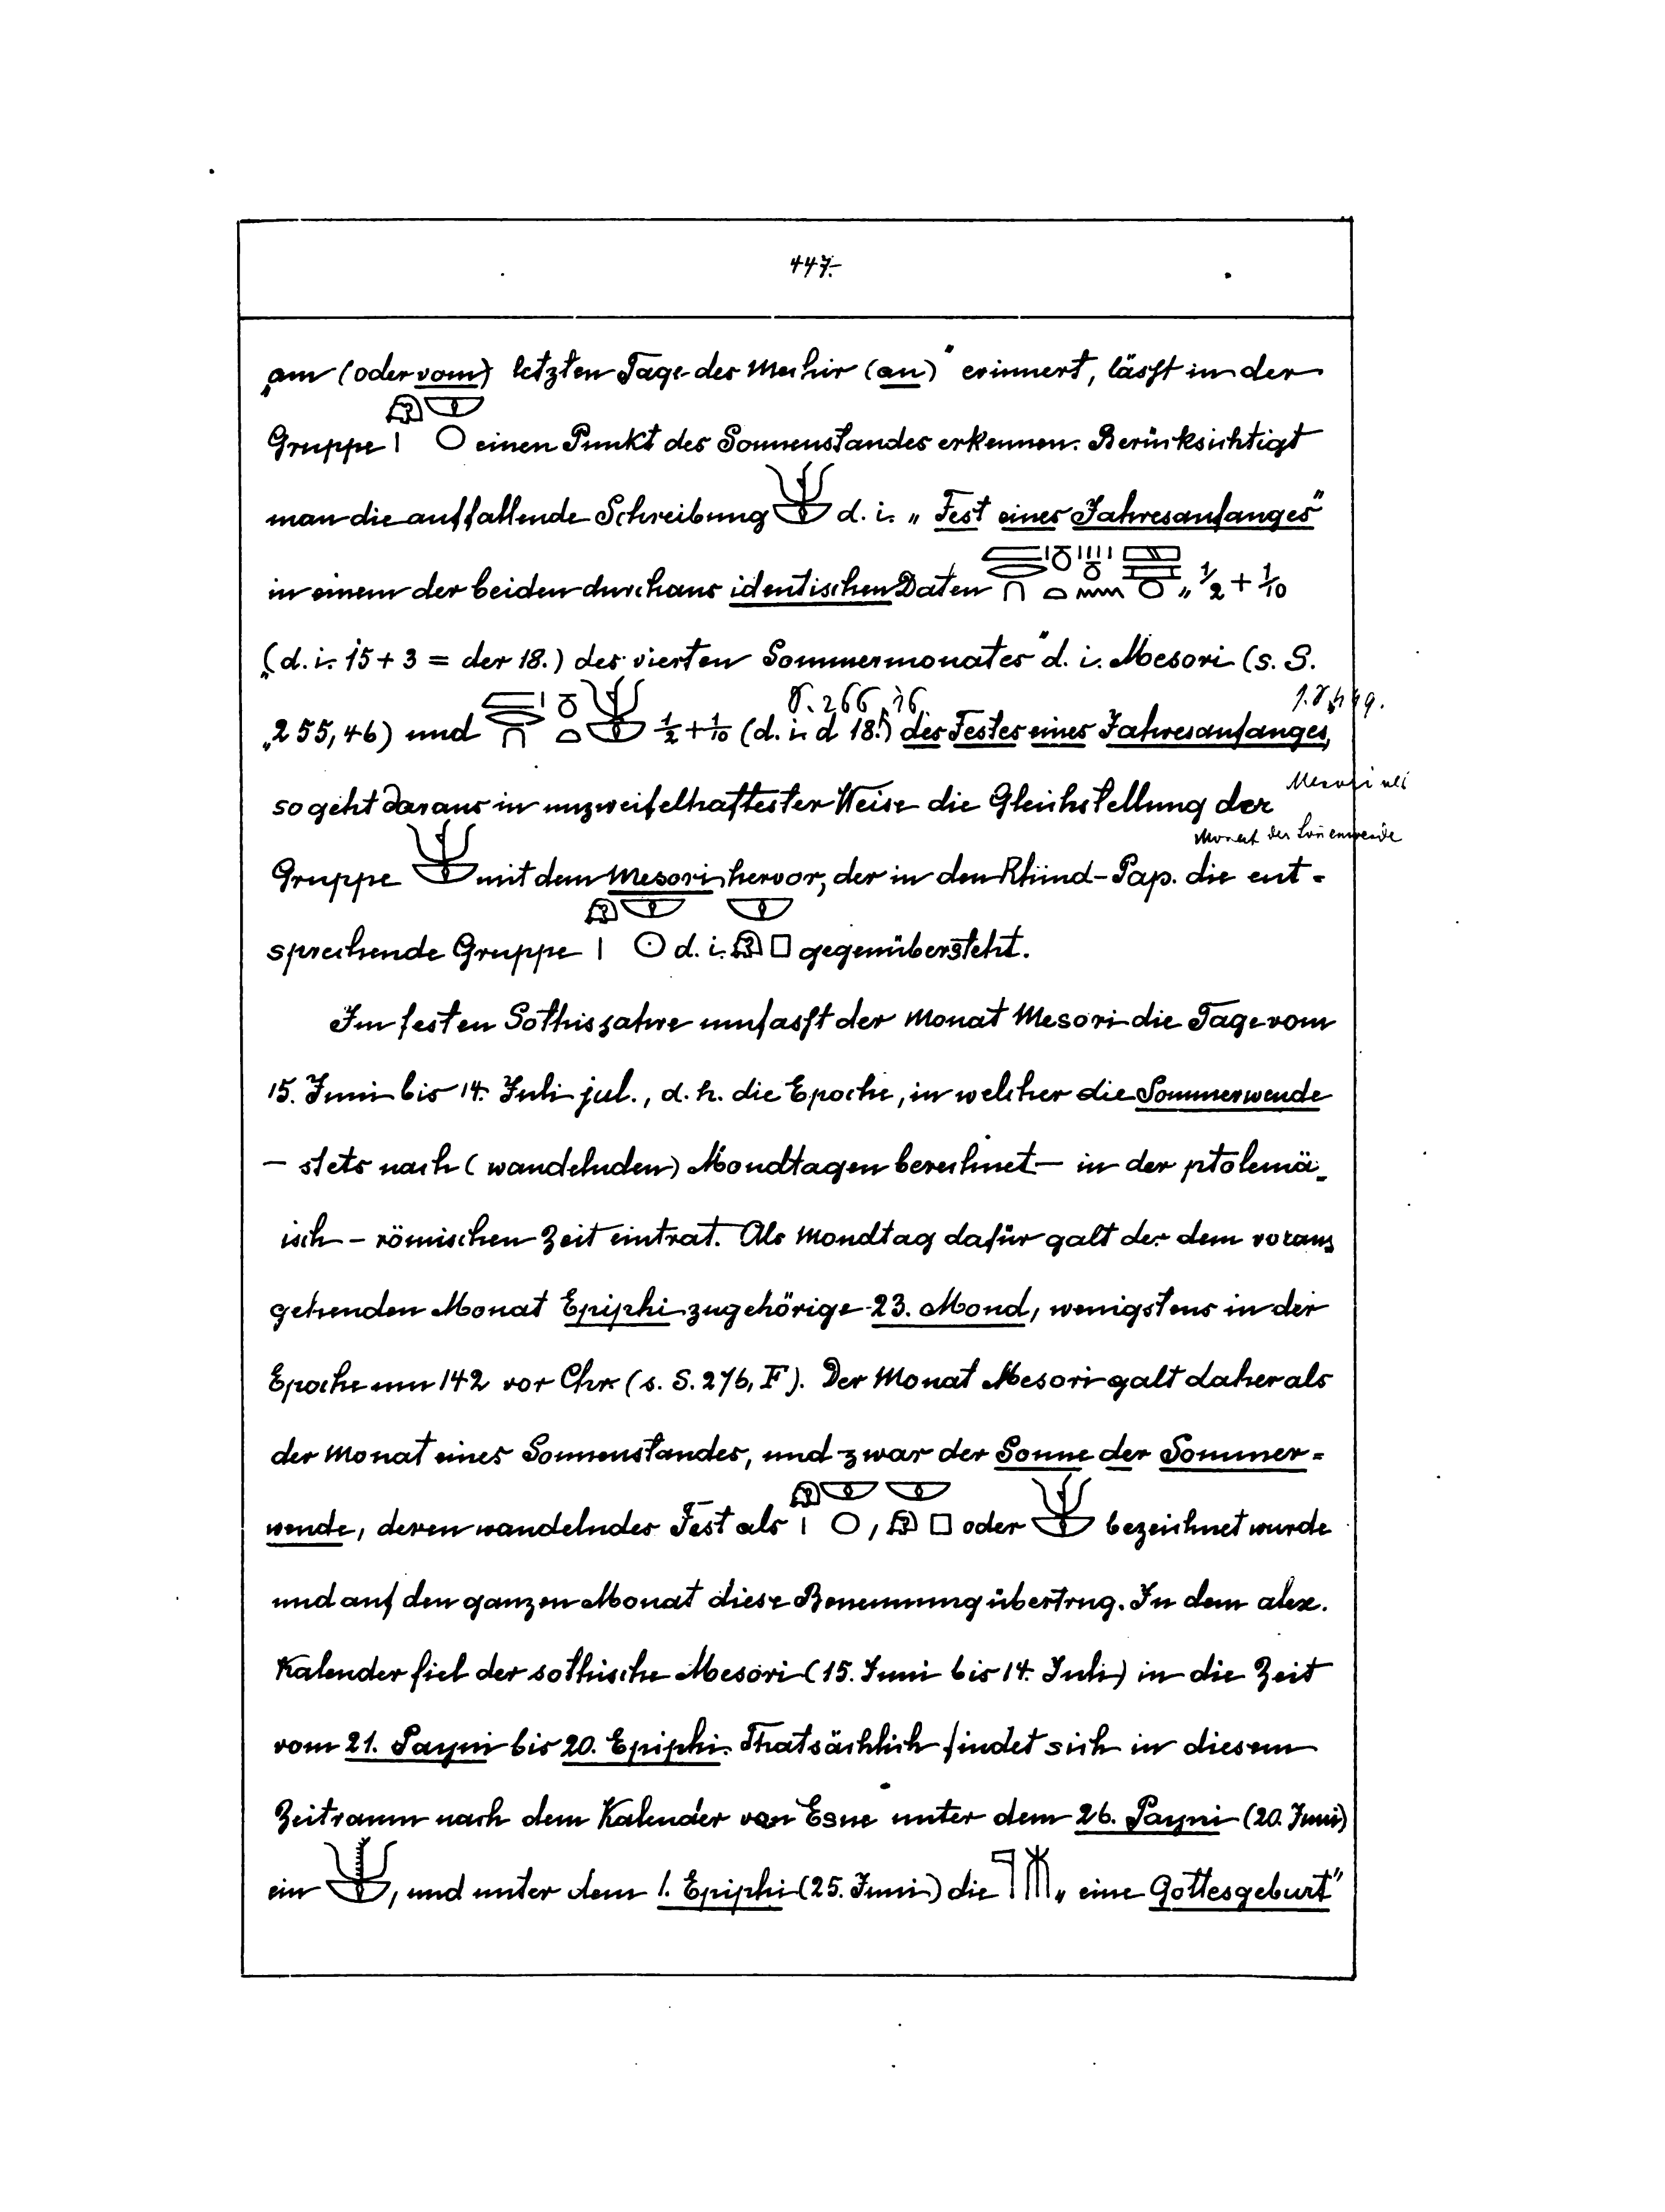 447.
„am (oder vom) letzten Tage des Mechir (an)“ erinnert, lässt in der
Gruppe einen Punkt des Sonnenstandes erkennen. Berücksichtigt
man die auffallende Schreibung d. i. „Fest eines Jahresanfanges“
in einem der beiden durchaus identischen Daten „½ + 1/10
(d. i. 15 + 3 = der 18.) des vierten Sommermonates“ d. i. Mesori (s. S.
S. 266, 16.
„255, 46) und ½ + 1/10 (d. i. d 18.) des Festes eines Jahresanfanges,
so geht daraus in unzweifelhaftester Weise die Gleichstellung der
Mesori als
Monat der Sonnenwende
Gruppe mit dem Mesori hervor, der in den Rhind-Pap. die ent-
sprechende Gruppe d. i. gegenübersteht.
Im festen Sothisjahre umfasst der Monat Mesori die Tage vom
15. Juni bis 14. Juli jul., d. h. die Epoche, in welcher die Sommerwende
– stets nach (wandelnden) Mondtagen berechnet – in der ptolemä-
isch-römischen Zeit eintrat. Als Mondtag dafür galt der dem voraus
gehenden Monat Epiphi zugehörige 23. Mond, wenigstens in der
Epoche um 142 vor Chr (s. S. 276, F). Der Monat Mesori galt daher als
der Monat eines Sonnenstandes, und zwar der Sonne der Sommer-
wende, deren wandelndes Fest als , oder bezeichnet wurde
und auf den ganzen Monat diese Benennung übertrug. In dem alex.
Kalender fiel der sothische Mesori (15. Juni bis 14. Juli) in die Zeit
vom 21. Payni bis 20. Epiphi. Thatsächlich findet sich in diesem
Zeitraum nach dem Kalender von Esne unter dem 26. Payni (20. Juni)
ein , und unter dem 1. Epiphi (25. Juni) die „eine Gottesgeburt“